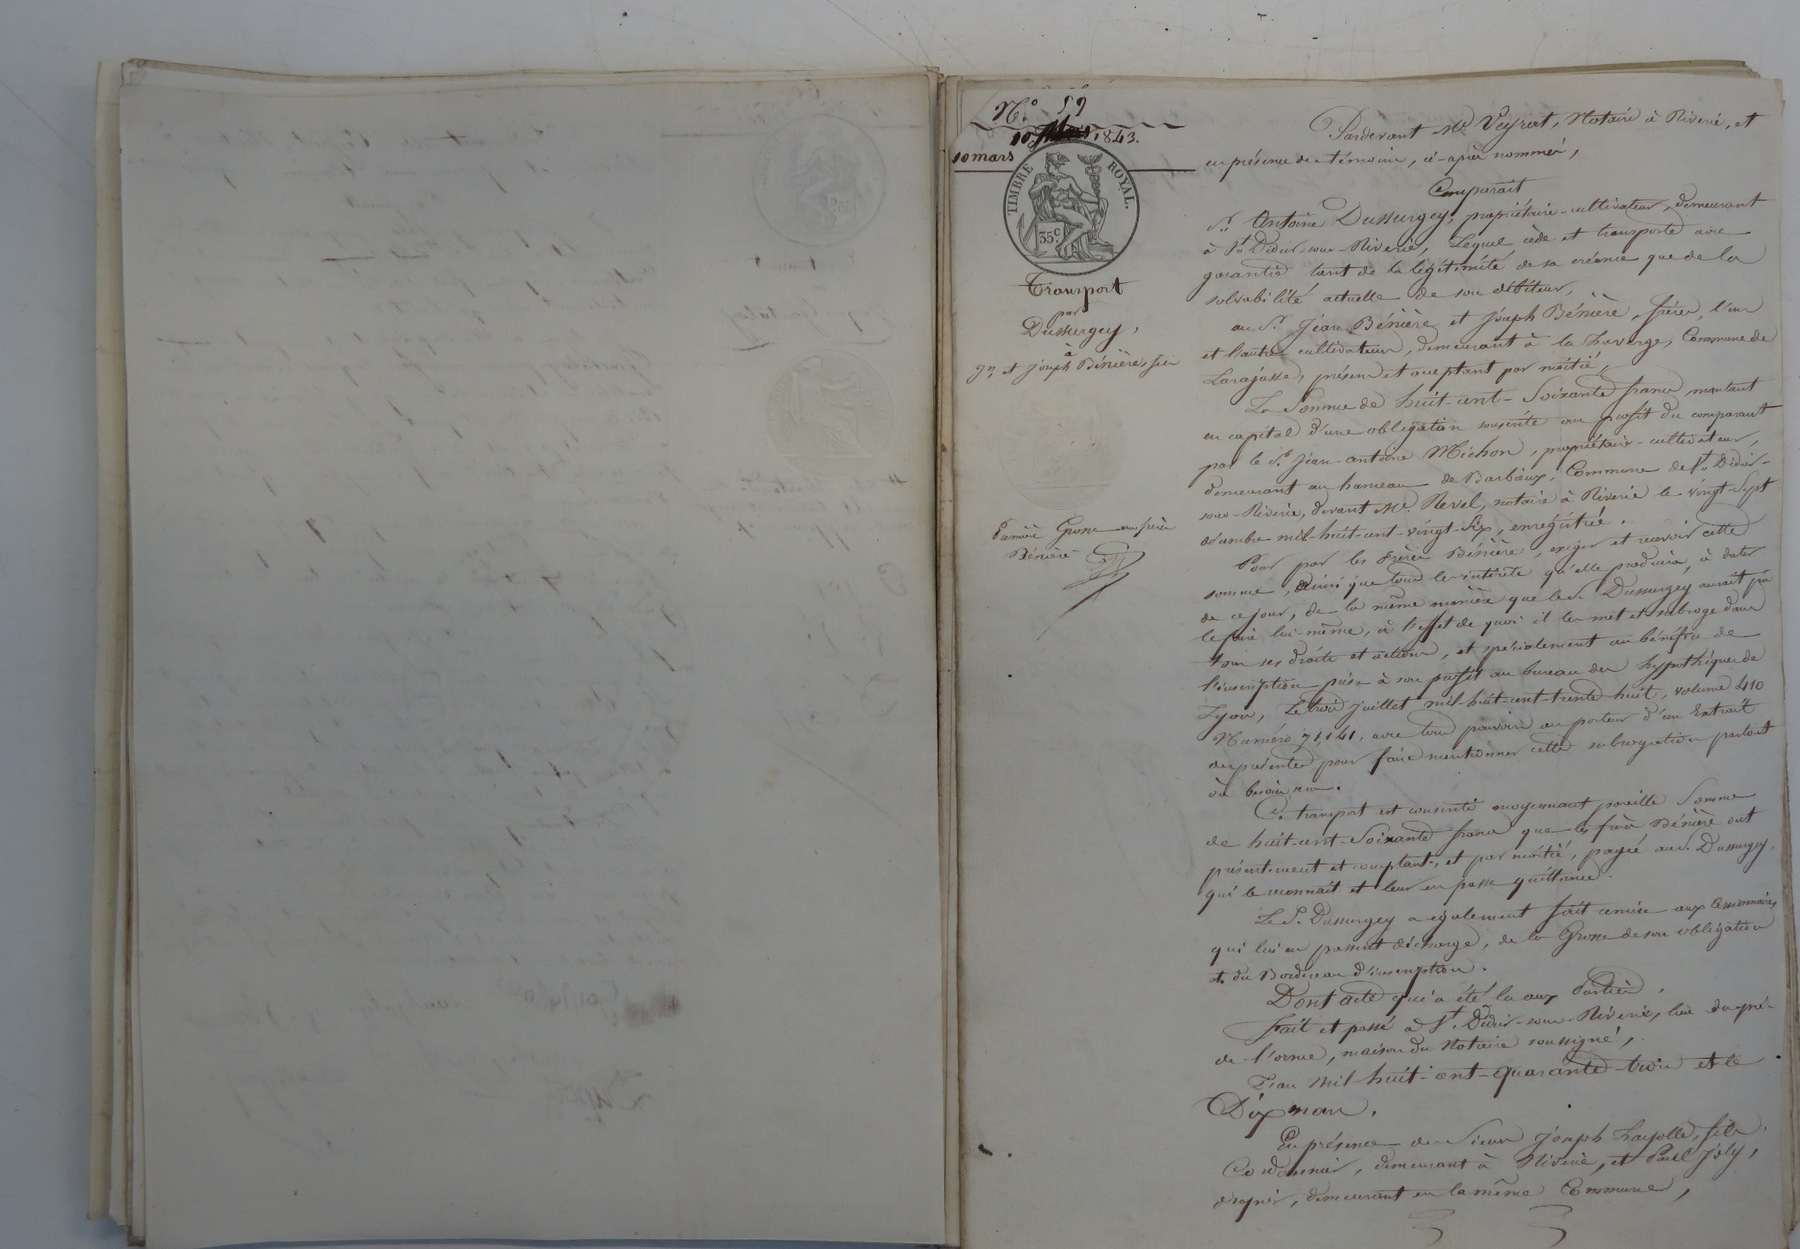 N.° 59
10 Mars 1843.
10 mars
TIMBRE ROYAL.
35.c
Transport
par
Dussurgey,
à
Jn. et Joseph Bénière, frères
Première Grosse aux frères
Bénière
Pardevant Me. Veyrat, Notaire à Riverie, et
en présence des témoins, ci-après nommés,
Comparait
Sr. Antoine Dussurgey, propriétaire-cultivateur, demeurant
à St. Didier-sous-Riverie, Lequel cède et transporte avec
garantie tant de la légitimité de sa créance que de la
solvabilité actuelle de son débiteur,
aux Srs. Jean Bénière et Joseph Bénière, frères, l'un
et l'autre cultivateurs, demeurant à la Laverge, Commune de
Larajasse, présens et acceptant par moitié,
La Somme de huit-cent-Soixante francs, montant
en capital d'une obligation souscrite au profit du comparant
par le Sr. Jean-antoine Michon, propriétaire-cultivateur,
demeurant au hameau de Barbieux, Commune de St. Didier-
sous-Riverie, devant Me. Revel, notaire à Riverie le vingt-Sept
décembre mil-huit-cent-vingt-Six, enregistrée.
Pour par les frères Bénière, exiger et recevoir cette
somme, ainsi que tous les intérêts qu'elle produira, à dater
de ce jour, de la même manière que le Sr. Dussurgey aurait pu
le faire lui-même, à l'effet de quoi il les met et subroge dans
tous ses droits et actions, et spécialement au bénéfice de
l'inscription prise à son profit au bureau des hypothèques de
Lyon, Le trois juillet mil-huit-cent-trente huit, volume 410
Numéro 71,141, avec tous pouvoirs au porteur d'un Extrait
des présentes pour faire mentionner cette subrogation partout
où besoin sera.
Ce transport est consenti moyennant pareille Somme
de huit-cent-Soixante francs que les frères Bénière ont
présentement et comptant, et par moitié, payée au Sr. Dussurgey,
qui le reconnait et leur en passe quittance.
Le Sr. Dussurgey a également fait remise aux Cessionnaires
qui lui en passent décharge, de la Grosse de son obligation
et du Bordereau d'inscription.
Dont acte qui a été lu aux Parties.
Fait et passé à St. Didier-sous-Riverie, lieu du pré-
de-l'orme, maison du Notaire soussigné,
L'an Mil huit-cent-quarante-trois et le
Dix mars.
En présence des Sieurs Joseph Fayolle, fils,
Cordonnier, demeurant à Riverie, et Paul Joly,
drapier, demeurant en la même Commune,